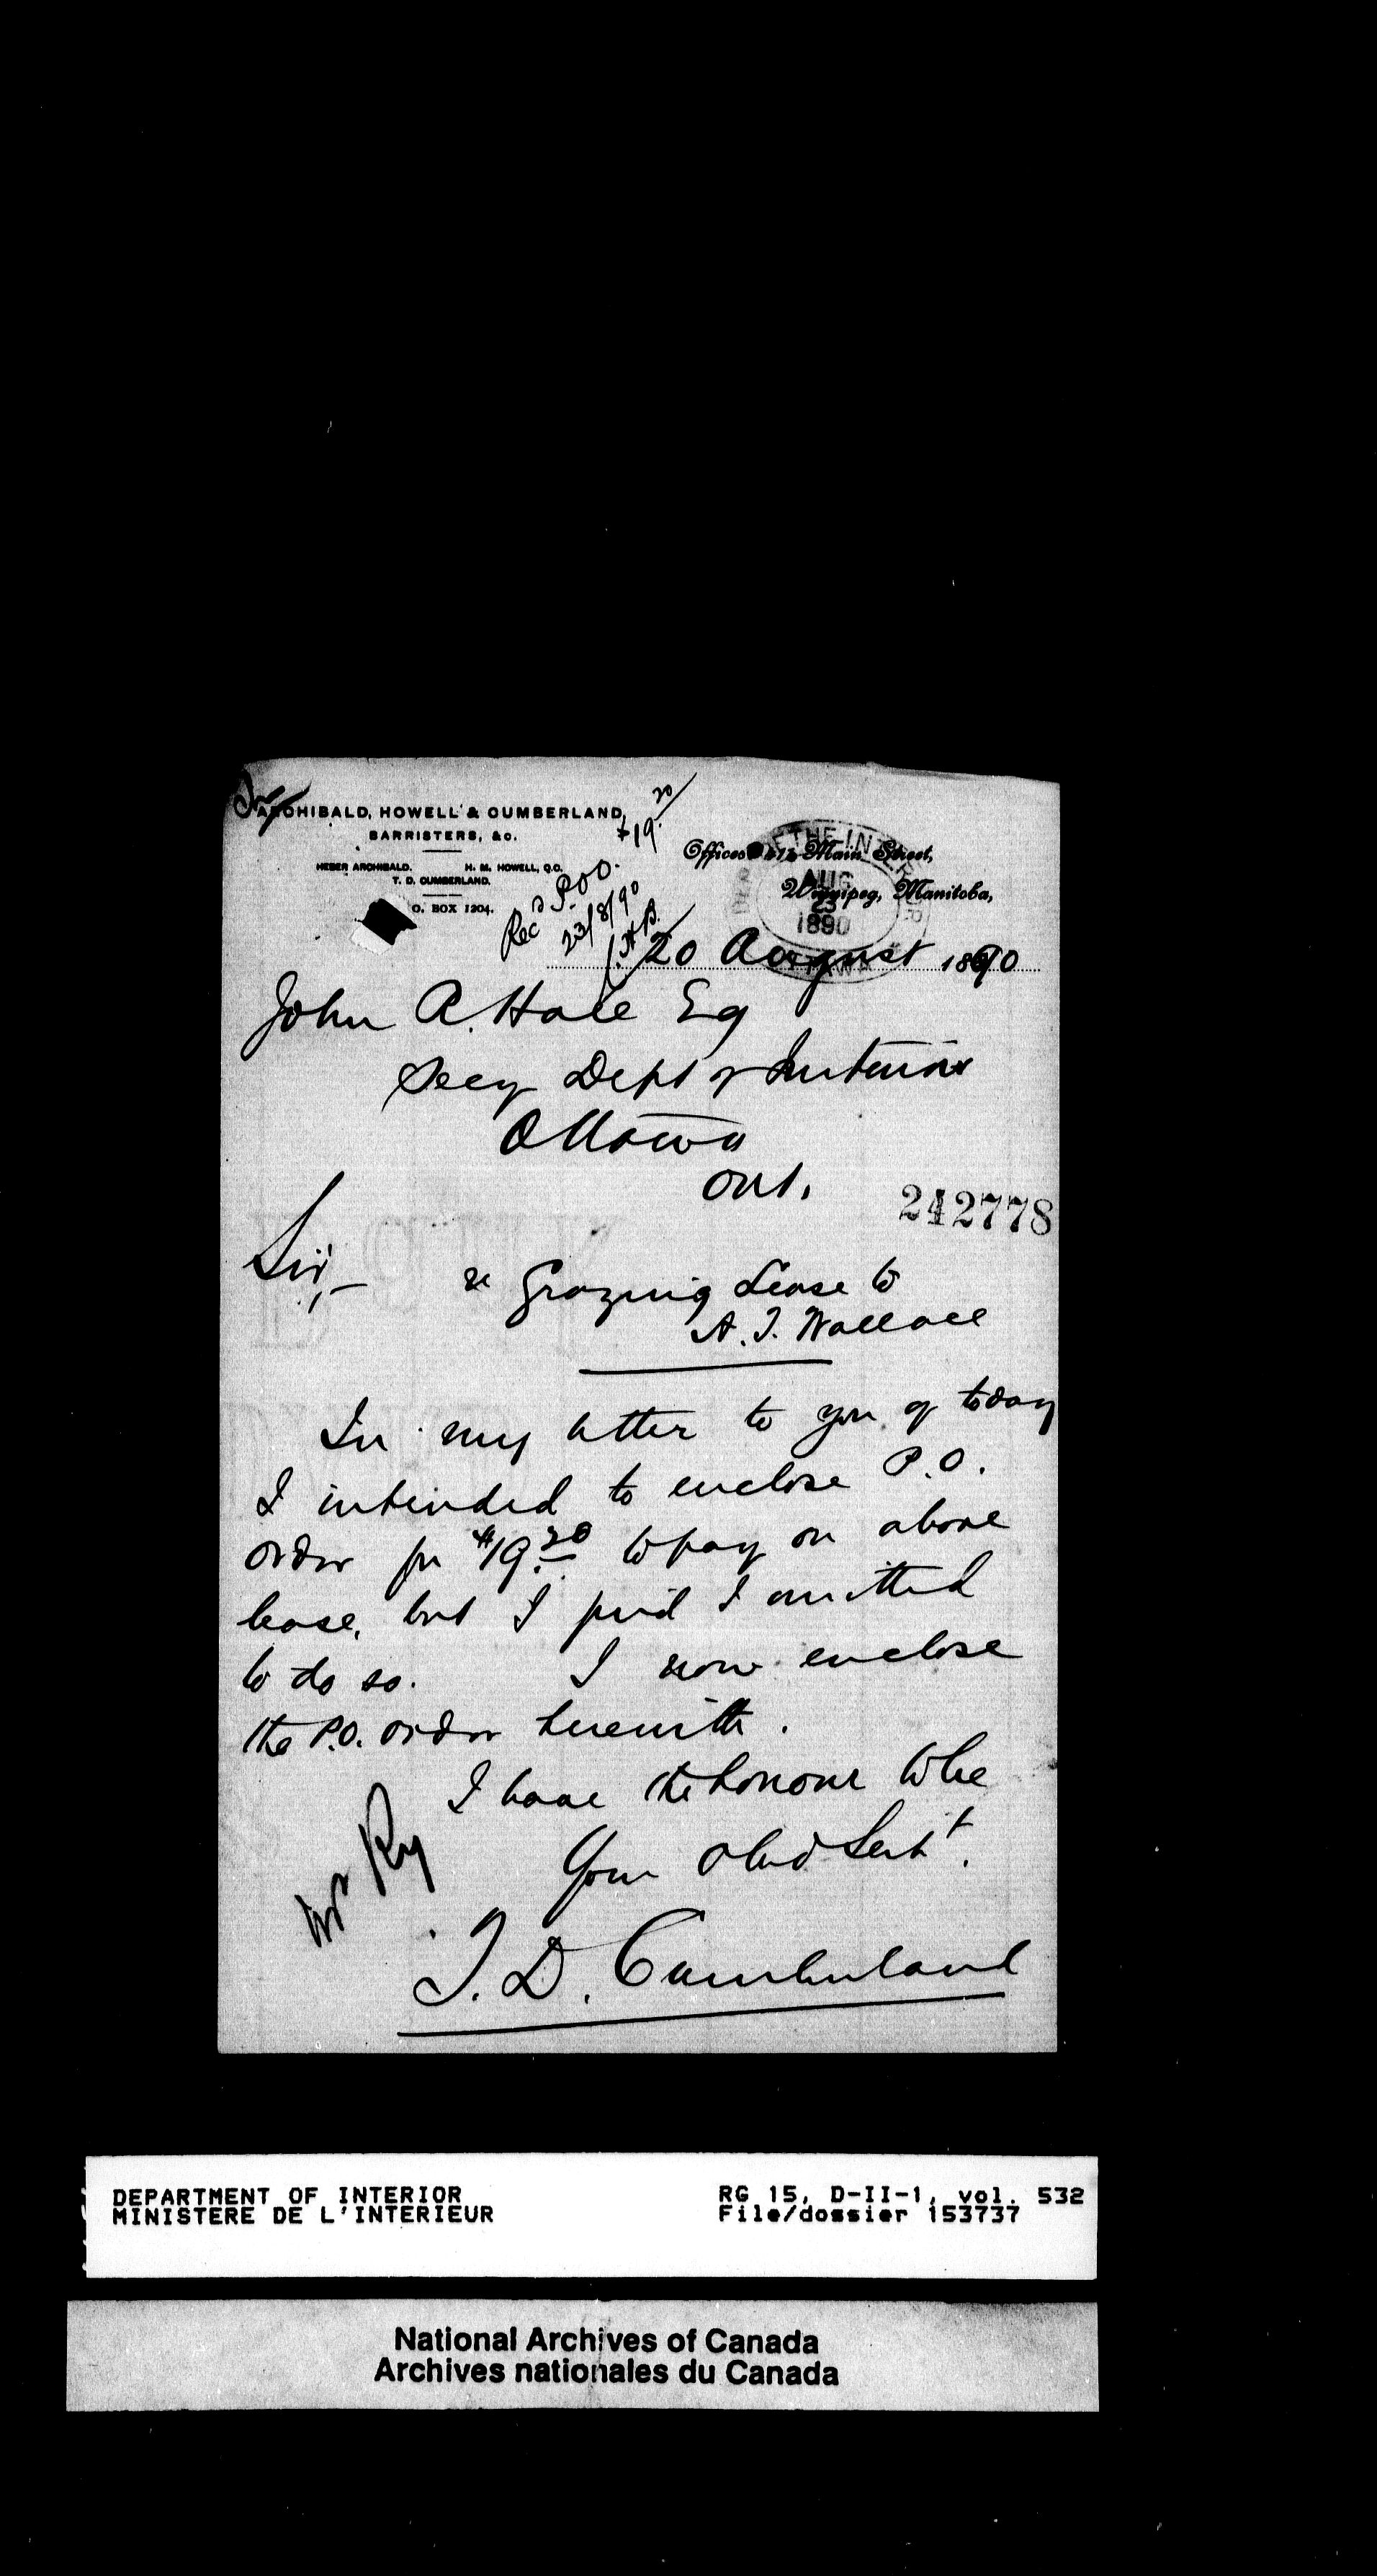 ARCHIBALD, HOWELL & CUMBERLAND,
BARRISTERS, &c.
HEBER ARCHIBALD. H. M. HOWELL, Q.C.
T. D. CUMBERLAND.
O. BOX 1204.
Rec'd P.O.O. $19.20
23/8/90
Offices Main Street,
Winnipeg, Manitoba,
DEP OF THE INTERIOR
AUG
23
1890
OTTAWA
20 August 1890
John A. Hall Eq
Secy Dept of Interior
Ottawa
Ont.
242778
Sir,-
re Grazing Lease to
A. T. Wallace
In my letter to you of today
I intended to enclose P.O.
order for $19.20 to pay on above
lease, but I find I omitted
to do so. I now enclose
the P.O. order herewith.
I have the honour to be
Your Obed Servt.
Mr Ry
T. D. Cumberland
DEPARTMENT OF INTERIOR
MINISTERE DE L'INTERIEUR
RG 15, D-II-1, vol. 532
File/dossier 153737
National Archives of Canada
Archives nationales du Canada